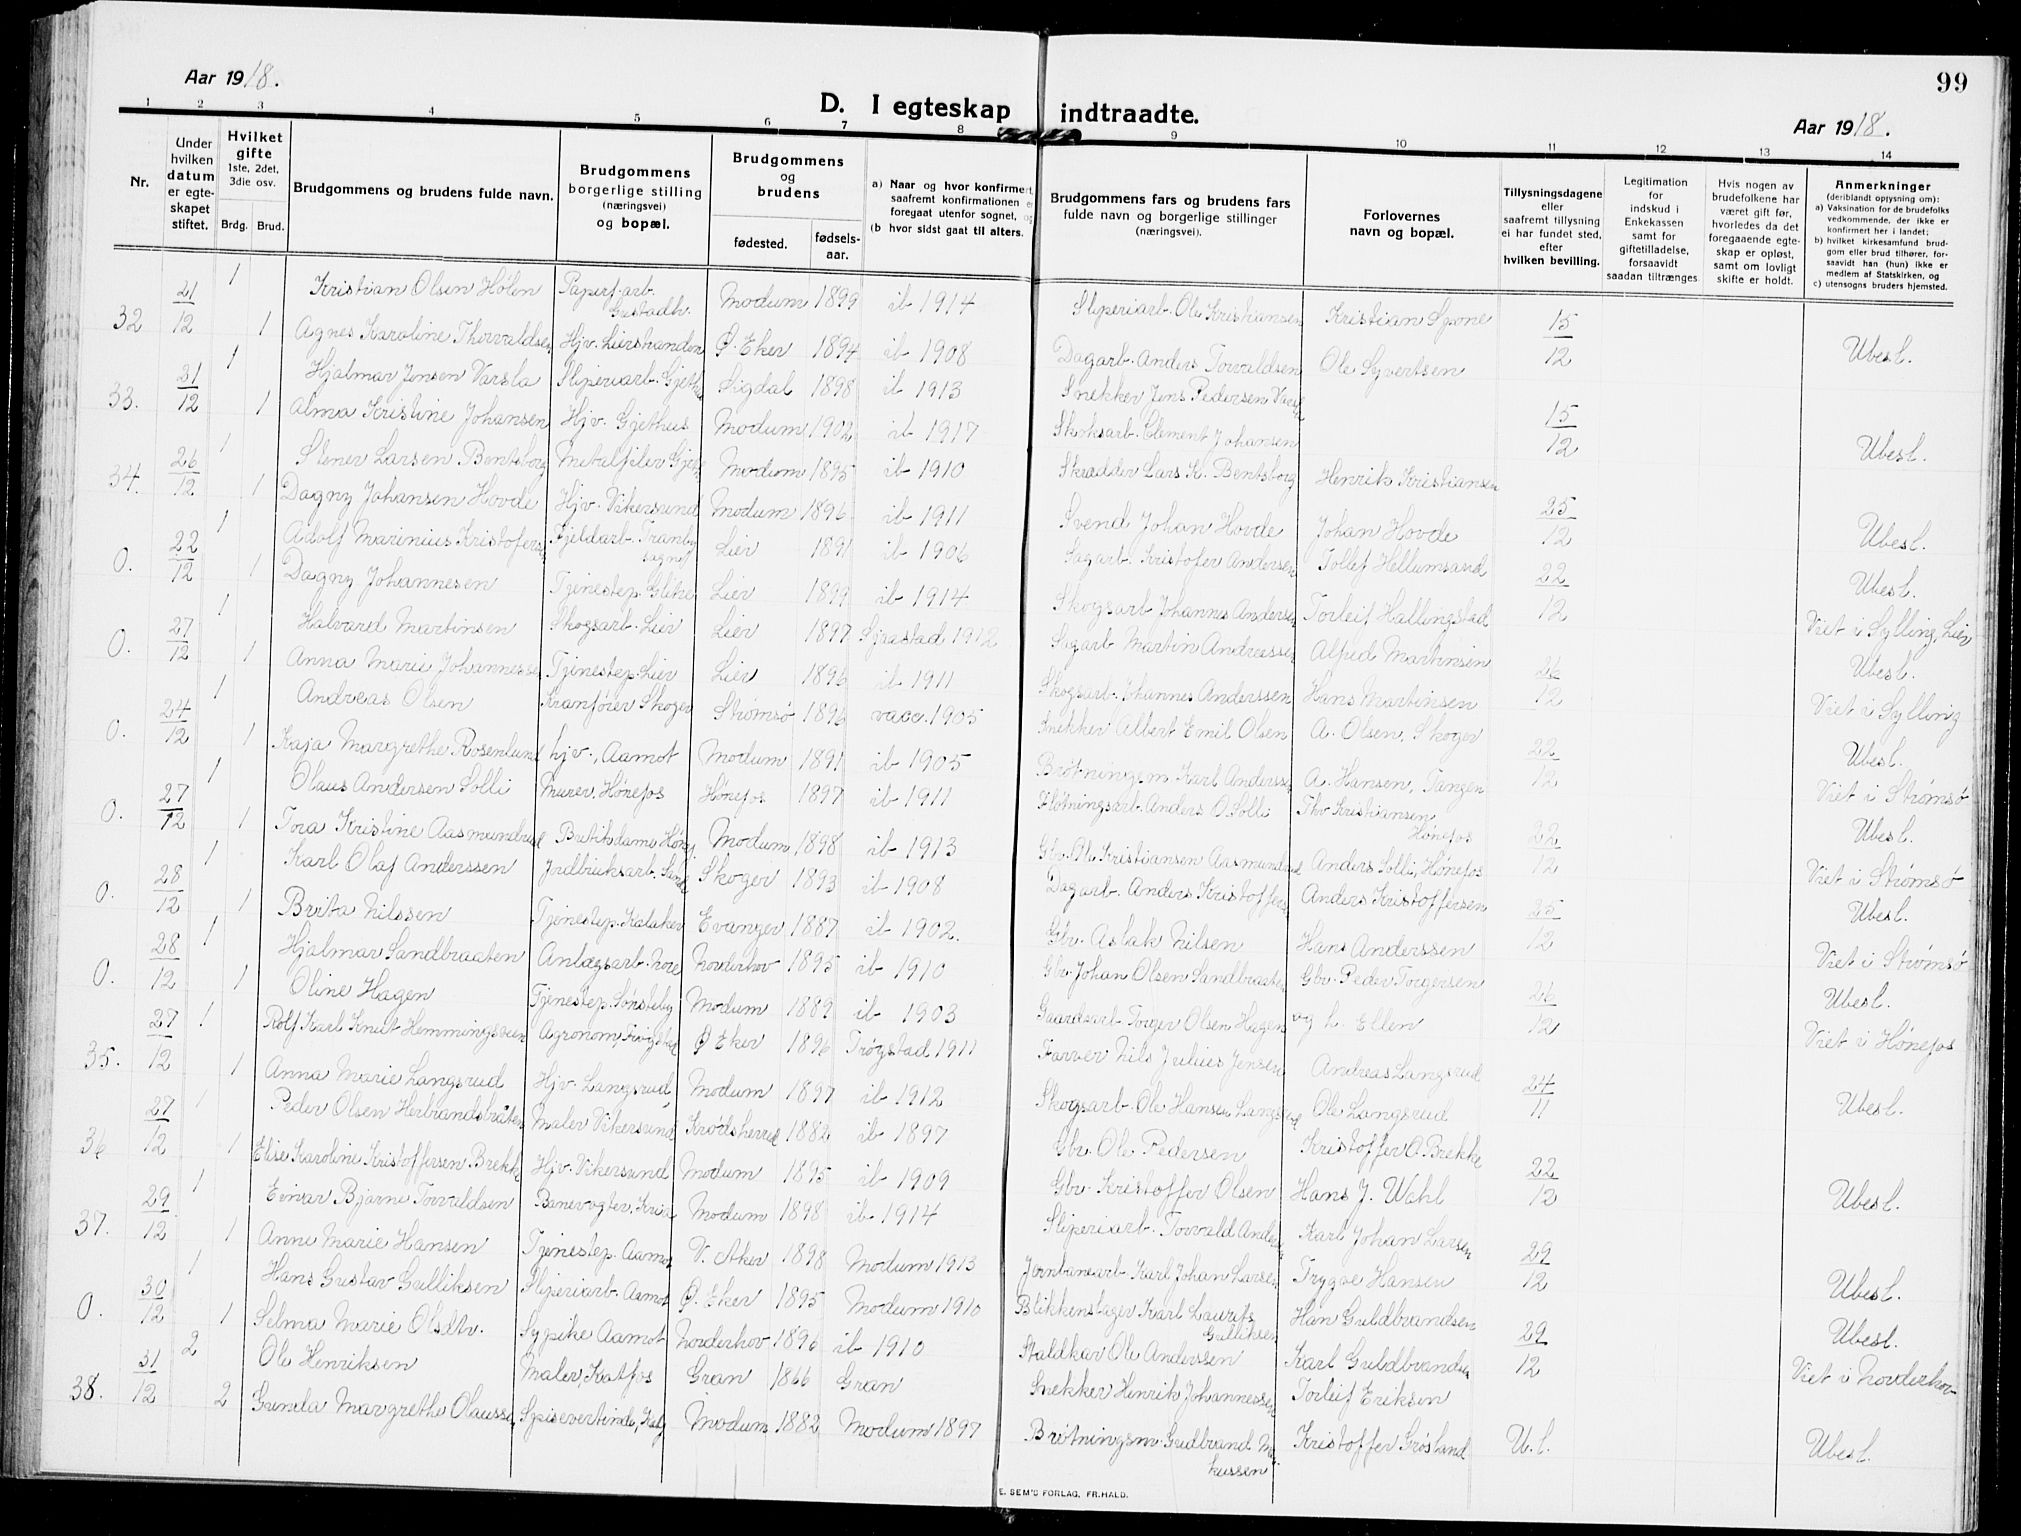 Aar 1918.
99
D. I egteskap indtraadte.
Aar 1918.
1 2 3 4 5 6 7 8 9 10 11 12 13 14
Nr.
Under hvilken datum er egteskapet stiftet.
Hvilket gifte 1ste, 2det, 3die osv.
Brdg. Brud.
Brudgommens og brudens fulde navn.
Brudgommens borgerlige stilling (næringsvei) og bopæl.
Brudgommens og brudens
fødested. fødselsaar.
a) Naar og hvor konfirmert, saafremt konfirmationen er foregaat utenfor sognet, og
(b hvor sidst gaat til alters.
Brudgommens fars og brudens fars fulde navn og borgerlige stillinger (næringsvei).
Forlovernes navn og bopæl.
Tillysningsdagene eller saafremt tillysning ei har fundet sted, efter hvilken bevilling.
Legitimation for indskud i Enkekassen samt for giftetilladelse, forsaavidt saadan tiltrænges
Hvis nogen av brudefolkene har været gift før, hvorledes da det foregaaende egteskap er opløst, samt om lovligt skifte er holdt.
Anmerkninger (deriblandt oplysning om):
a) Vaksination for de brudefolks vedkommende, der ikke er konfirmert her i landet;
b) hvilket kirkesamfund brudgom eller brud tilhører, forsaavidt han (hun) ikke er medlem af Statskirken, og
c) utensogns bruders hjemsted.
32 21/12 1 Kristian Olsen Hølen Paperf.arb. Gustadh. Modum 1899 ib 1914 Sliperiarb. Ole Kristiansen Kristian Spone 15/12
1 Agnes Karoline Thorvaldsen Hjv. Lierstranden Ø. Eker 1894 ib 1908 Dagarb. Anders Torvaldsen Ole Syvertsen Ubesl.
33. 21/12 1 Hjalmar Jensen Varsla Sliperiarb. Gjethus Sigdal 1898 ib 1913 Snekker Jens Pedersen 15/12
1 Alma Kristine Johansen Hjv. Gjethus Modum 1902 ib 1917 Skoksarb. Clement Johansen Ubesl.
34. 26/12 1 Stener Larsen Bentsborg Metalfiler Modum 1895 ib 1910 Skrædder Lars K. Bentsborg Henrik Kristiansen 25/12
1 Dagny Johansen Hovde Hjv. Vikersund Modum 1896 ib 1911 Svend Johan Hovde Johan Hovde Ubesl.
0. 22/12 1 Adolf Marinius Kristofersen Fjeldarb. Tranby sogn Lier 1891 ib 1906 Sagarb. Kristofer Andersen Tollef Hellumsand 22/12
1 Dagny Johannesen Tjenestep. Lier 1899 ib 1914 Skogsarb. Johannes Andersen Torleif Hallingstad Ubesl. Viet i Sylling, Lier
0. 27/12 1 Halvard Martinsen Skogsarb. Lier Lier 1897 Sjaastad 1912 Sagarb Martin Andreassen Alfred Martinsen 26/12
1 Anna Marie Johannessen Tjenestep. Lier Lier 1896 ib 1911 Skogsarb. Johannes Anderssen Hans Martinsen Ubesl. Viet i Sylling
0. 24/12 1 Andreas Olsen Kranfører Skoger Strømsø 1896 vacc. 1905 Snekker Albert Emil Olsen A. Olsen, Skoger 22/12
1 Kaja Margrethe Rosenlund hjv., Aamot Modum 1891 ib 1905 Brøtningem. Karl Anderssen A. Hansen, Tangen Ubesl. Viet i Strømsø
0. 27/12 1 Olaus Andersen Solli Murer, Hønefos Hønefos 1897 ib 1911 Fløtningsarb. Anders O. Solli Thv Kristiansen Hønefos 22/12
1 Tora Kristine Aasmundrud Butiksdame Modum 1898 ib 1913 Gbr. Ole Kristiansen Aasmundrud Anders Solli, Hønefos Ubesl. Viet i Strømsø
0. 28/12 1 Karl Olaf Anderssen Jordbruksarb. Skoger 1893 ib 1908 Dagarb. Anders Kristoffersen Anders Kristoffersen 25/12
1 Brita Nilssen Tjenestep. Evanger 1887 ib 1902. Gbr. Aslak Nilsen Hans Anderssen Ubesl. Viet i Strømsø
0. 28/12 1 Hjalmar Sandbraaten Anlægsarb. Nore Norderhov 1895 ib 1910 Gbr. Johan Olsen Sandbraaten Gbr. Peder Torgersen 26/12
1 Oline Hagen Tjenestep. Sønsteby Modum 1889 ib 1903 Gaardearb. Torger Olsen Hagen og L. Ellen Ubesl. Viet i Hønefos
35. 27/12 1 Rolf Karl Knut Hemmingsveen Agronom, Trøgstad Ø. Eker 1896 Trøgstad 1911 Farver Nils Julius Jensen Andreas Langsrud 24/11
1 Anna Marie Langsrud Hjv. Langsrud, Modum 1897 ib 1912 Skogsarb. Ole Hansen Langsrud Ole Langsrud Ubesl.
36 27/12 1 Peder Olsen Herbrandsbråten Maler Vikersund Krødsherred 1882 ib 1897 Gbr. Ole Pedersen Kristoffer O. Brekke 22/12
1 Elise Karoline Kristoffersen Brekke Hjv. Vikersund Modum 1895 ib 1909 Gbr. Kristoffer Olsen Hans J. Wahl Ubesl.
37. 29/12 1 Einar Bjarne Torvaldsen Banevogter, Kria Modum 1898 ib 1914 Sliperiarb. Torvald Andersen Karl Johan Larsen 29/12
1 Anne Marie Hansen Tjenestep. Aamot V. Aker 1898 Modum 1913 Jernbanearb. Karl Johan Larsen Trygve Hansen Ubesl.
0. 30/12 1 Hans Gustav Gulliksen Sliperiarb. Aamot Ø. Eker 1895 Modum 1910 Blikkenslager Karl Laurits Gulliksen Han Guldbrandsen 29/12
1 Selma Marie Olsdtr. Sypike Aamot Norderhov 1896 ib 1910 Staldkar Ole Anderssen Karl Guldbrandsen Ubesl. Viet i Norderhov
38. 31/12 2 Ole Henriksen Maler, Katfos Gran 1866 Gran Snekker Henrik Johannessen Torleif Eriksen U.l.
2 Gunda Margrethe Olaussen Spisevertinde, Modum 1882 Modum 1897 Brøtningsm. Gudbrand Markussen Kristoffer Grøsland Ubesl.
E. SEM'S FORLAG, FR.HALD.